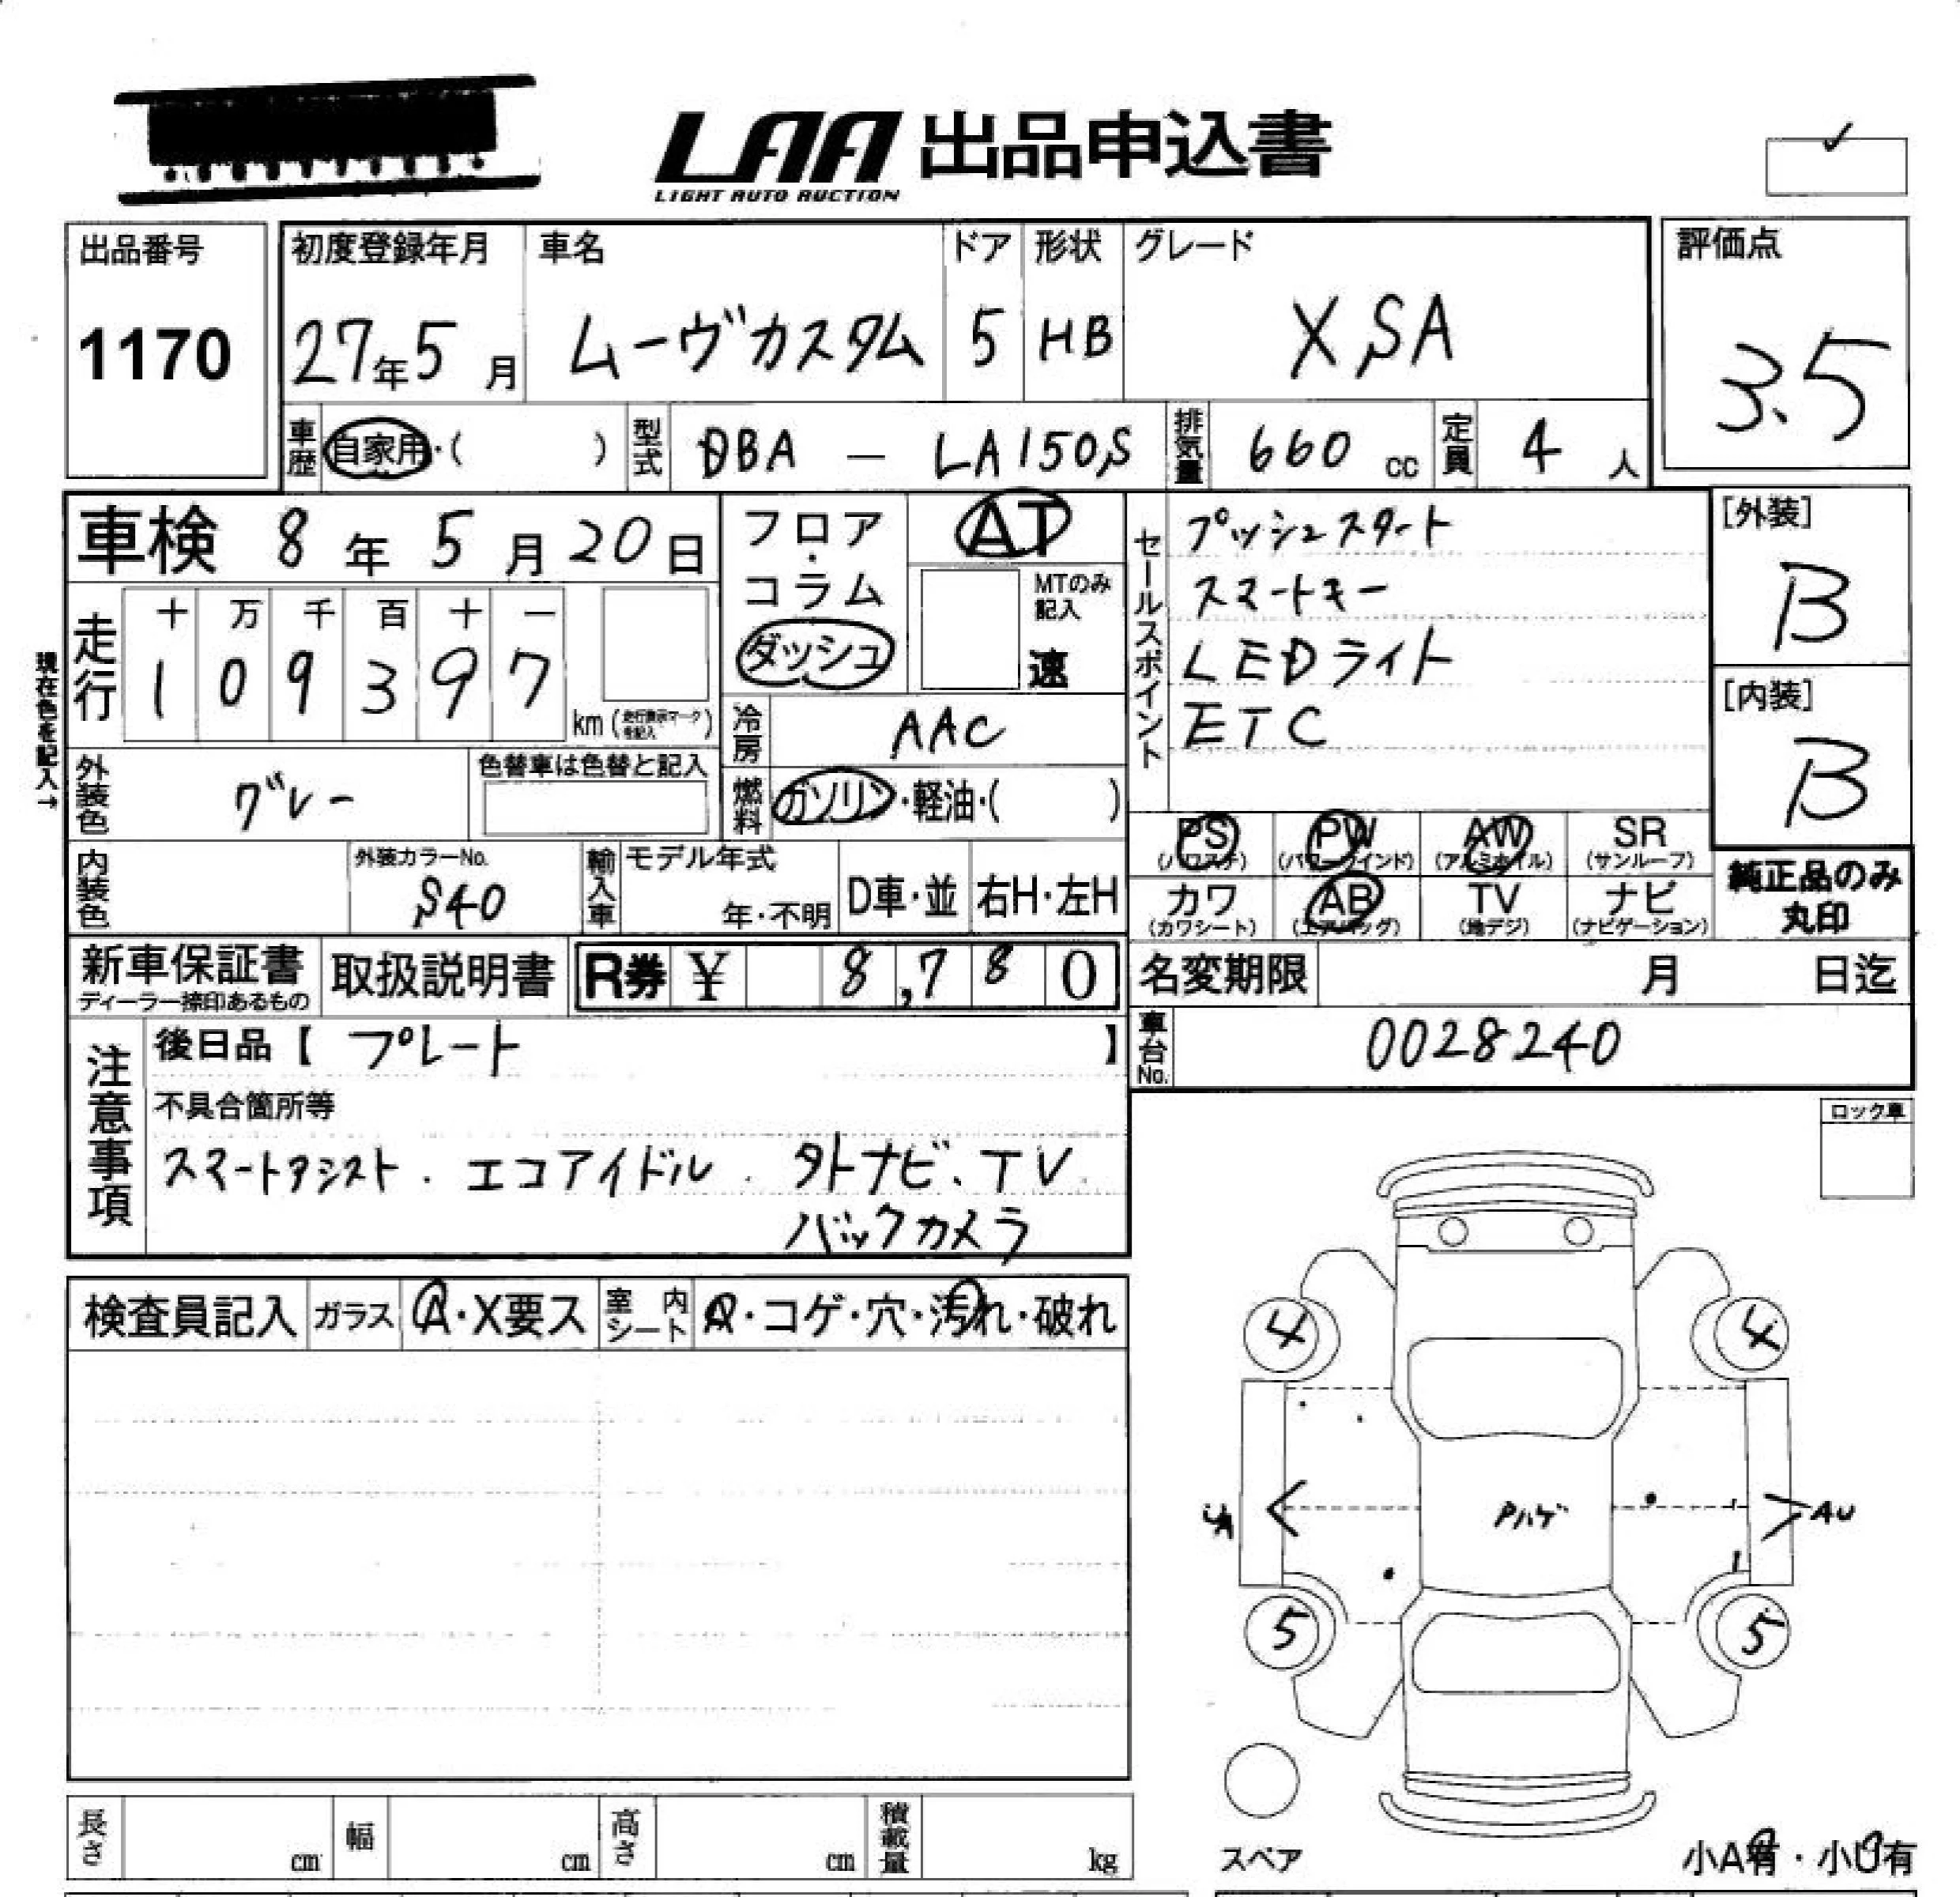 LAA 出品申込書
LIGHT AUTO AUCTION
出品番号
1170
初度登録年月
27年5月
車名
ムーヴカスタム
ドア
5
形状
HB
グレード
XSA
評価点
3.5
車歴 自家用・( )
型式 DBA - LA150S
排気量 660 cc
定員 4 人
車検 8年5月20日
フロア・コラム
ダッシュ
AT
MTのみ記入
速
セールスポイント
プッシュスタート
スマートキー
LEDライト
ETC
[外装]
B
[内装]
B
現在色を記入→
走行
十 万 千 百 十 一
1 0 9 3 9 7
km (走行表示マークを記入)
冷房 AAC
外装色 グレー
色替車は色替と記入
燃料 ガソリン・軽油・( )
PS (パワステ) PW (パワーウインド) AW (アルミホイル) SR (サンルーフ)
カワ (カワシート) AB (エアバッグ) TV (地デジ) ナビ (ナビゲーション)
純正品のみ
丸印
内装色
外装カラーNo.
S40
輸入車
モデル年式
年・不明
D車・並
右H・左H
新車保証書
ディーラー捺印あるもの
取扱説明書
R券 ¥ 8,780
名変期限 月 日迄
車台No. 0028240
注意事項
後日品【 プレート 】
不具合箇所等
スマートアシスト . エコアイドル . 外ナビ、TV
バックカメラ
ロック車
検査員記入
ガラス A・X要ス
室内シート A・コゲ・穴・汚れ・破れ
4 4
Pハゲ
AU
5 5
スペア
小A有・小U有
長さ cm
幅 cm
高さ cm
積載量 kg